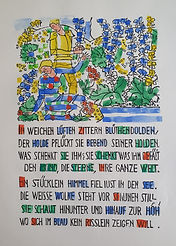 IN WEICHEN LÜFTEN ZITTERN BLÜTHENDOLDEN,
DER HOLDE PFLÜCKT SIE BEBEND SEINER HOLDEN.
WAS SCHENKT SIE IHM? SIE SCHENKT WAS IHM GEFÄLLT
DEN MOND, DIE STERNE, IHRE GANZE WELT.
EIN STÜCKLEIN HIMMEL FIEL IN DEN SEE.
DIE WEISSE WOLKE STEHT VOR STAUNEN STILL.
SIE SCHAUT HINUNTER UND HINAUF ZUR HÖH
WO SICH IM BLAU KEIN RISSLEIN ZEIGEN WILL.